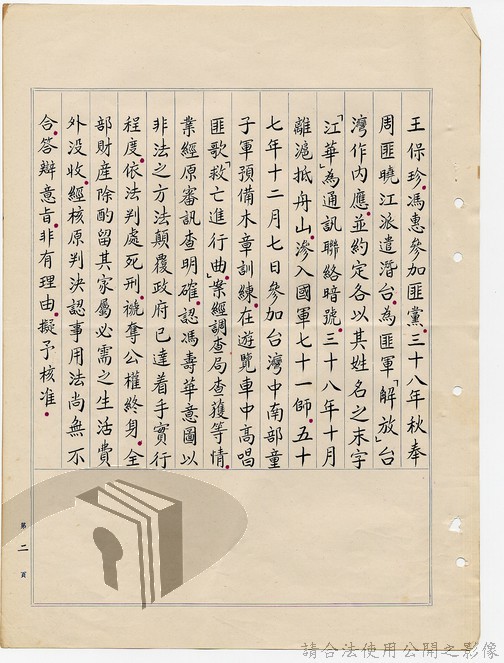 王保珍、馮惠參加匪黨。三十八年秋奉
周匪曉江派遣潛台。為匪軍「解放」台
灣作內應。並約定各以其姓名之末字
「江華」為通訊聯絡暗號。三十八年十月
離滬抵舟山。滲入國軍七十一師。五十
七年十二月七日參加台灣中南部童
子軍預備木章訓練在遊覽車中高唱
匪歌「救亡進行曲」案經調查局查獲等情。
業經原審訊查明確。認馮壽華意圖以
非法之方法顛覆政府已達着手實行
程度。依法判處死刑。褫奪公權終身。全
部財產除酌留其家屬必需之生活費
外沒收。經核原判決認事用法尚無不
合。答辯意旨。非有理由。擬予核准。
第二頁
請合法使用公開之影像